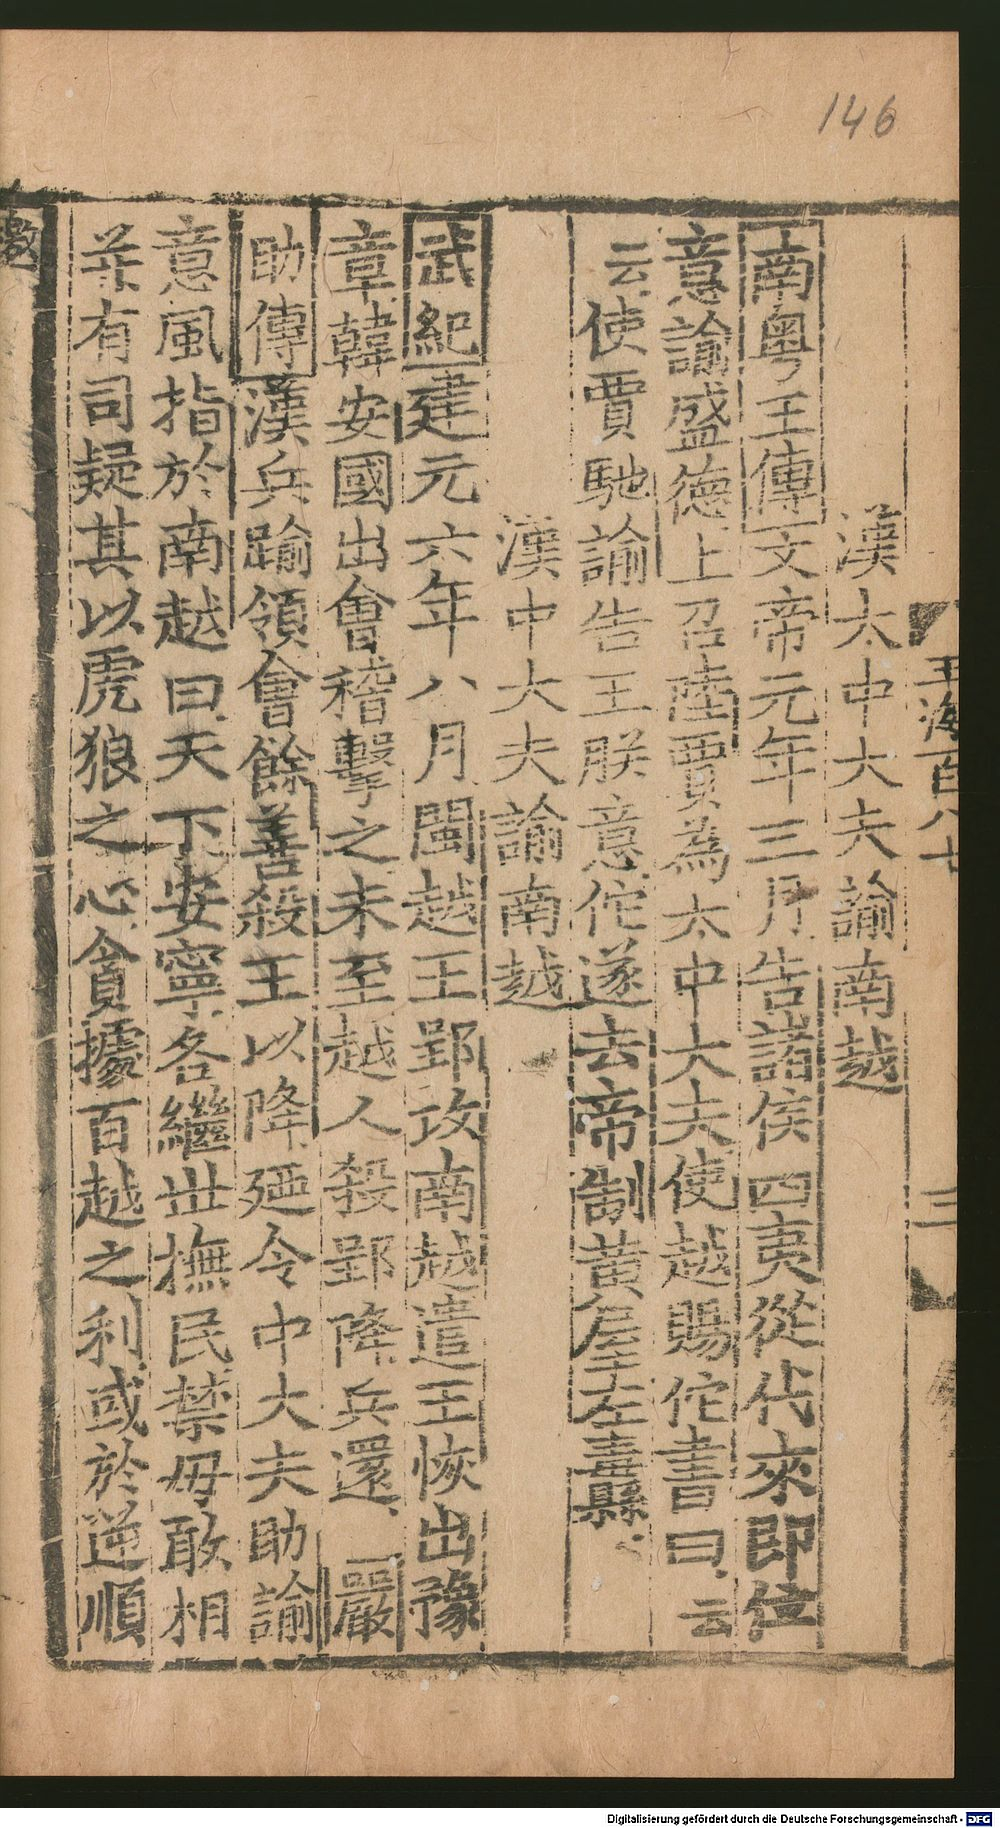 146
玉海百八十
三
漢太中大夫諭南越
南粤王傳文帝元年三月告諸侯四夷從代來即位
意諭盛德上召陸賈為太中大夫使越賜佗書曰云
云使賈馳諭告王朕意佗遂去帝制黃屋左纛
漢中大夫諭南越
武紀建元六年八月閩越王郢攻南越遣王恢出豫
章韓安國出會稽擊之未至越人殺郢降兵還嚴
助傳漢兵踰領會餘善殺王以降廼令中大夫助諭
意風指於南越曰天下安寧各繼世撫民禁毋敢相
并有司疑其以虎狼之心貪據百越之利或於逆順
Digitalisierung gefördert durch die Deutsche Forschungsgemeinschaft - DFG